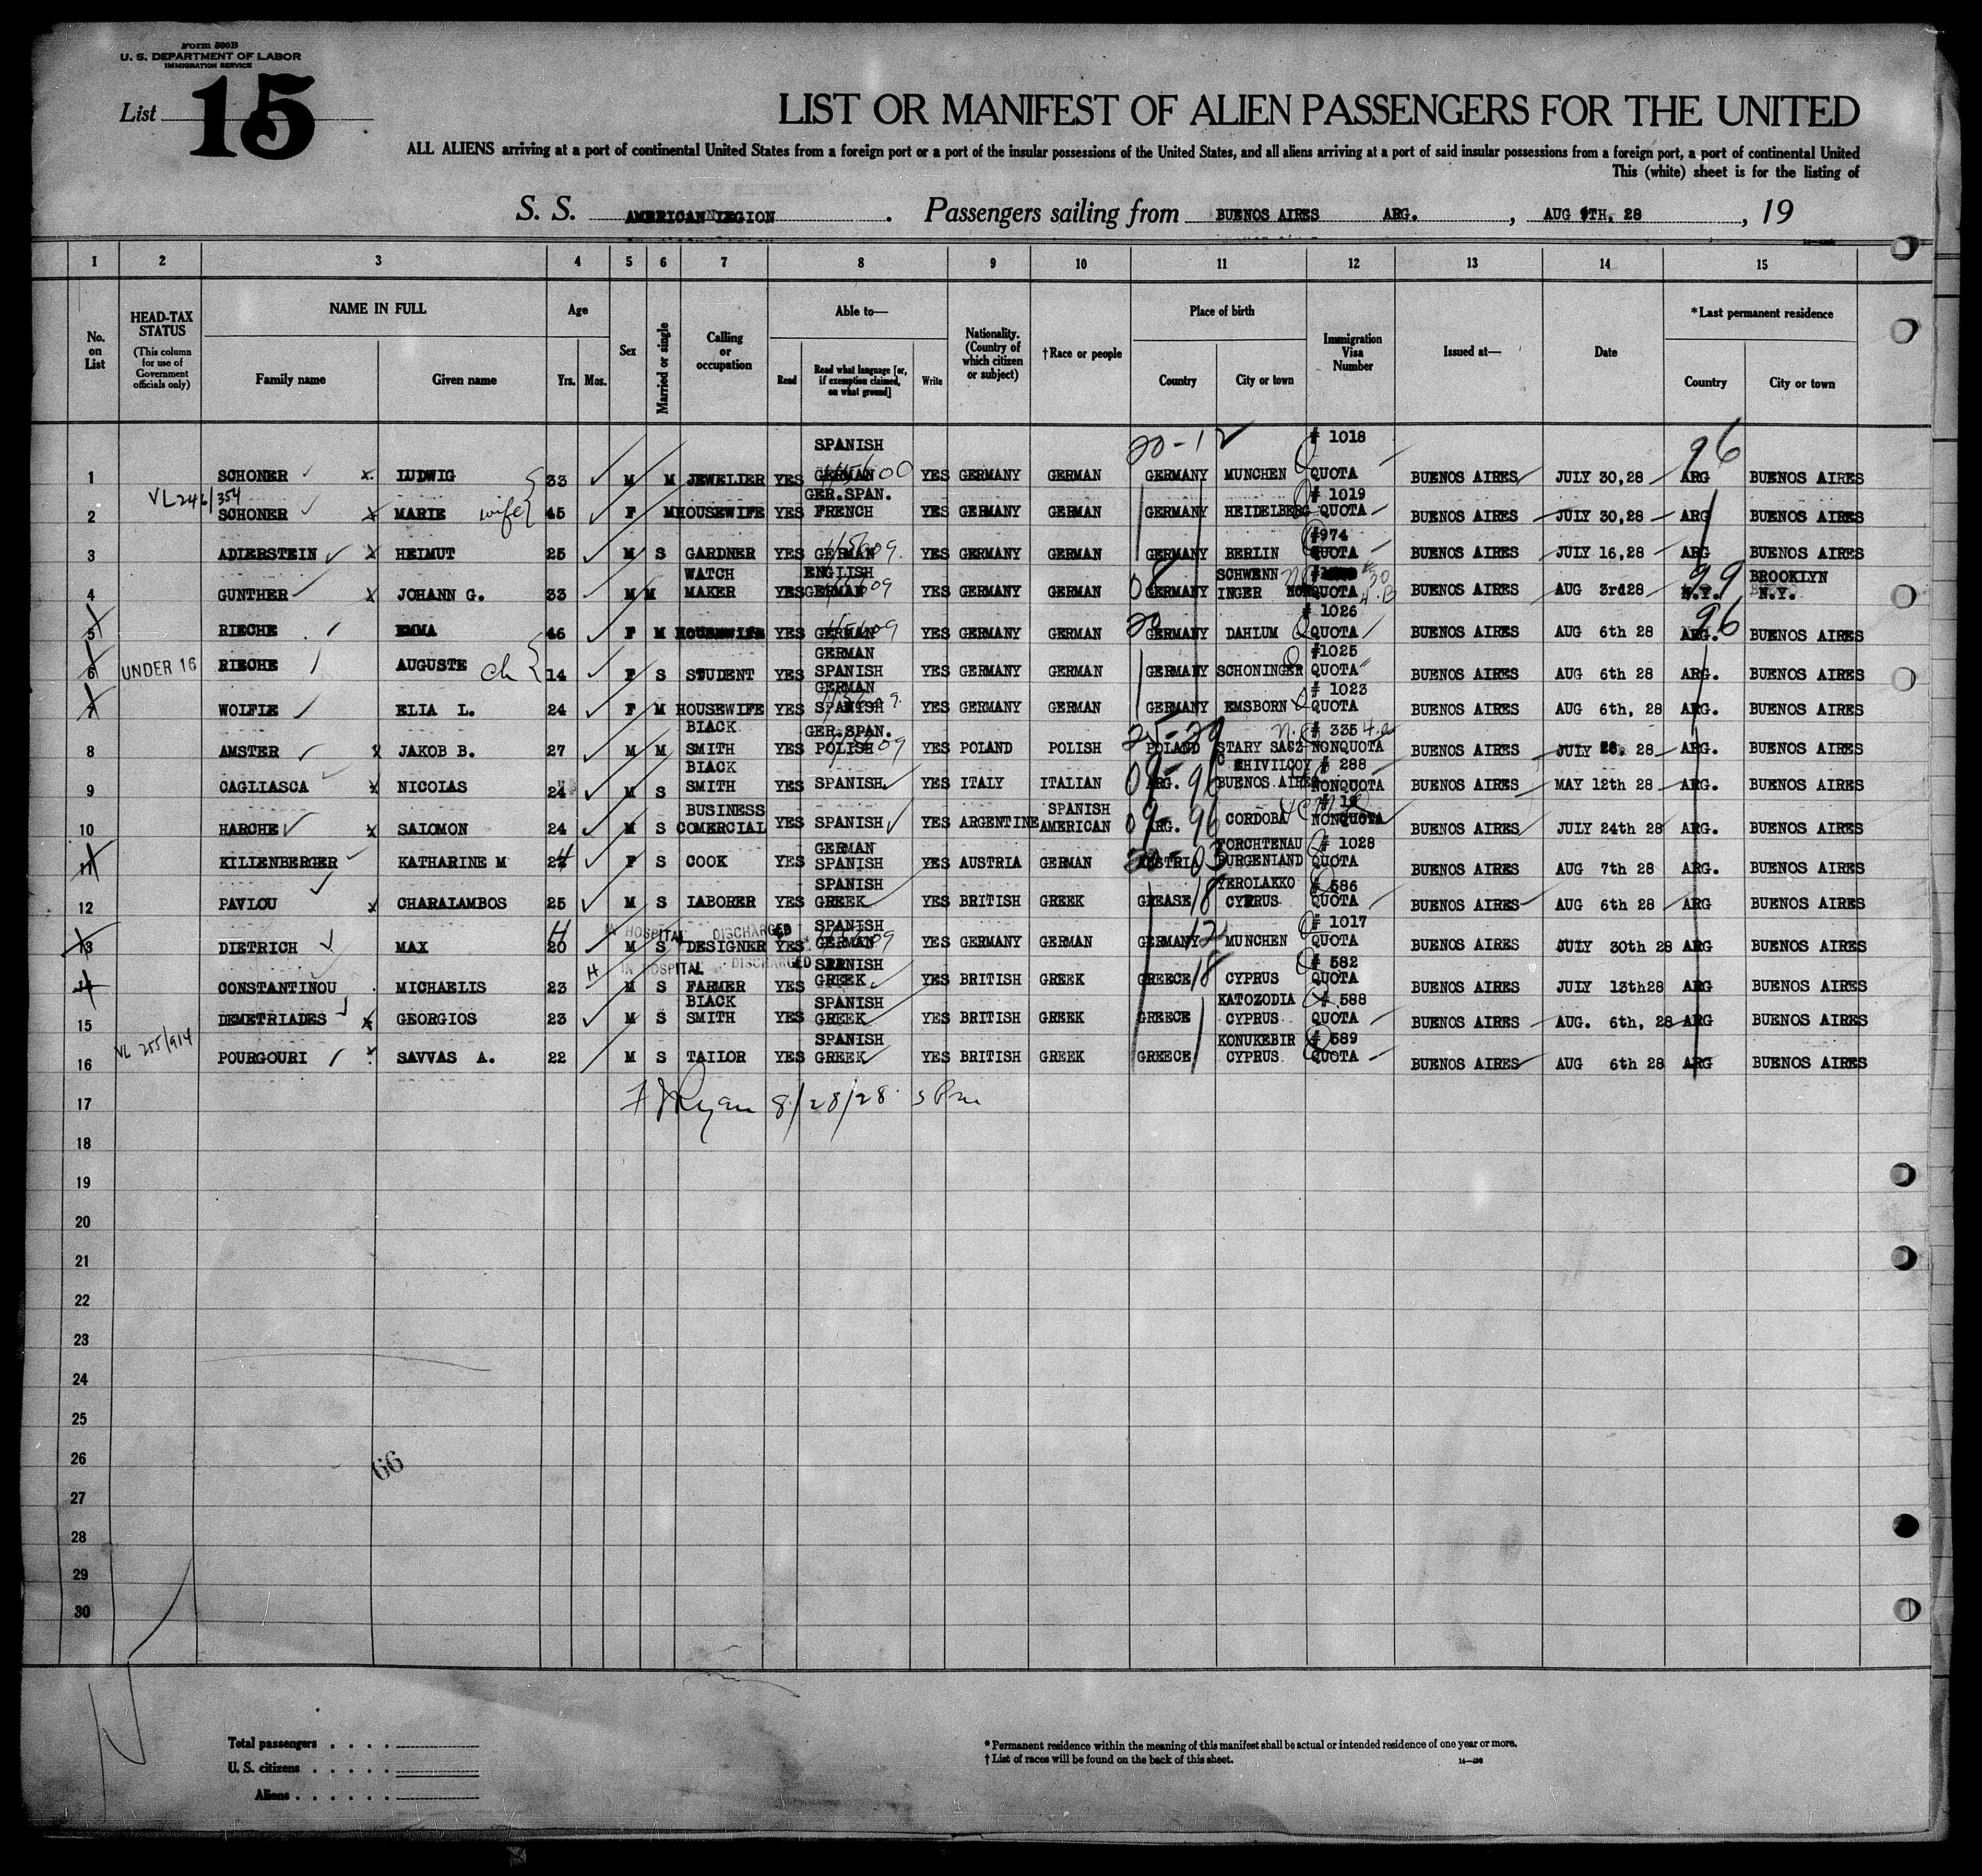 Form 500B
U. S. DEPARTMENT OF LABOR
IMMIGRATION SERVICE
List 15
LIST OR MANIFEST OF ALIEN PASSENGERS FOR THE UNITED
ALL ALIENS arriving at a port of continental United States from a foreign port or a port of the insular possessions of the United States, and all aliens arriving at a port of said insular possessions from a foreign port, a port of continental United
This (white) sheet is for the listing of
S. S. AMERICAN LEGION . Passengers sailing from BUENOS AIRES ARG. , AUG 9TH, 28 , 19
1 2 3 4 5 6 7 8 9 10 11 12 13 14 15
No. on List
HEAD-TAX STATUS
(This column for use of Government officials only)
NAME IN FULL
Family name Given name
Age
Yrs. Mos.
Sex
Married or single
Calling or occupation
Able to—
Read Read what language [or, if exemption claimed, on what ground] Write
Nationality. (Country of which citizen or subject)
†Race or people
Place of birth
Country City or town
Immigration Visa Number
Issued at—
Date
*Last permanent residence
Country City or town
20-12 96
SPANISH # 1018
1 SCHONER x LUDWIG 33 M M JEWELIER YES GERMAN YES GERMANY GERMAN GERMANY MUNCHEN QUOTA BUENOS AIRES JULY 30,28 ARG BUENOS AIRES
VL246/354 GER.SPAN. # 1019
2 SCHONER x MARIE wife 45 F M HOUSEWIFE YES FRENCH YES GERMANY GERMAN GERMANY HEIDELBERG QUOTA BUENOS AIRES JULY 30,28 ARG BUENOS AIRES
#974
3 ADIERSTEIN x HEIMUT 25 M S GARDNER YES GERMAN YES GERMANY GERMAN GERMANY BERLIN QUOTA BUENOS AIRES JULY 16,28 ARG BUENOS AIRES
WATCH ENGLISH 08 SCHWENN 99 BROOKLYN
4 GUNTHER x JOHANN G. 33 M M MAKER YES GERMAN YES GERMANY GERMAN GERMANY INGER NONQUOTA BUENOS AIRES AUG 3rd28 N.Y. N.Y.
20 # 1026 96
5 RIECHE EMMA 46 F M HOUSEWIFE YES GERMAN YES GERMANY GERMAN GERMANY DAHLUM QUOTA BUENOS AIRES AUG 6th 28 ARG. BUENOS AIRES
GERMAN #1025
6 UNDER 16 RIECHE AUGUSTE ch 14 F S STUDENT YES SPANISH YES GERMANY GERMAN GERMANY SCHONINGER QUOTA BUENOS AIRES AUG 6th 28 ARG. BUENOS AIRES
GERMAN # 1023
7 WOLFIE ELIA L. 24 F M HOUSEWIFE YES SPANISH YES GERMANY GERMAN GERMANY EMSBORN QUOTA BUENOS AIRES AUG 6th, 28 ARG. BUENOS AIRES
BLACK GER.SPAN. 25-29 # 335
8 AMSTER x JAKOB B. 27 M M SMITH YES POLISH YES POLAND POLISH POLAND STARY SACZ NONQUOTA BUENOS AIRES JULY 28 ARG. BUENOS AIRES
BLACK CHIVILCOY # 288
9 CAGLIASCA x NICOLAS 24 M S SMITH YES SPANISH YES ITALY ITALIAN ARG. 96 BUENOS AIRES NONQUOTA BUENOS AIRES MAY 12th 28 ARG. BUENOS AIRES
BUSINESS SPANISH
10 HARCHE x SALOMON 24 M S COMERCIAL YES SPANISH YES ARGENTINE AMERICAN ARG. 96 CORDOBA NONQUOTA BUENOS AIRES JULY 24th 28 ARG. BUENOS AIRES
GERMAN FORCHTENAU # 1028
11 KILIENBERGER KATHARINE M 24 F S COOK YES SPANISH YES AUSTRIA GERMAN AUSTRIA BURGENLAND QUOTA BUENOS AIRES AUG 7th 28 ARG. BUENOS AIRES
SPANISH YEROLAKKO # 586
12 PAVLOU x CHARALAMBOS 25 M S LABORER YES GREEK YES BRITISH GREEK GREASE 18 CYPRUS QUOTA BUENOS AIRES AUG 6th 28 ARG BUENOS AIRES
H IN HOSPITAL DISCHARGED SPANISH # 1017
13 DIETRICH MAX 20 M S DESIGNER YES GERMAN YES GERMANY GERMAN GERMANY 12 MUNCHEN QUOTA BUENOS AIRES JULY 30th 28 ARG BUENOS AIRES
H IN HOSPITAL DISCHARGED SPANISH # 582
14 CONSTANTINOU MICHAELIS 23 M S FARMER YES GREEK YES BRITISH GREEK GREECE 18 CYPRUS QUOTA BUENOS AIRES JULY 13th28 ARG BUENOS AIRES
BLACK SPANISH KATOZODIA # 588
15 DEMETRIADES x GEORGIOS 23 M S SMITH YES GREEK YES BRITISH GREEK GREECE CYPRUS QUOTA BUENOS AIRES AUG. 6th, 28 ARG BUENOS AIRES
VL 255/914 SPANISH KONUKEBIR # 589
16 POURGOURI x SAVVAS A. 22 M S TAILOR YES GREEK YES BRITISH GREEK GREECE CYPRUS QUOTA BUENOS AIRES AUG 6th 28 ARG BUENOS AIRES
17 F J Ryan 8/28/28 5 Pm
18
19
20
21
22
23
24
25
26
66
27
28
29
30
Total passengers . . . .
U. S. citizens . . . . .
Aliens . . . . . .
* Permanent residence within the meaning of this manifest shall be actual or intended residence of one year or more.
† List of races will be found on the back of this sheet.